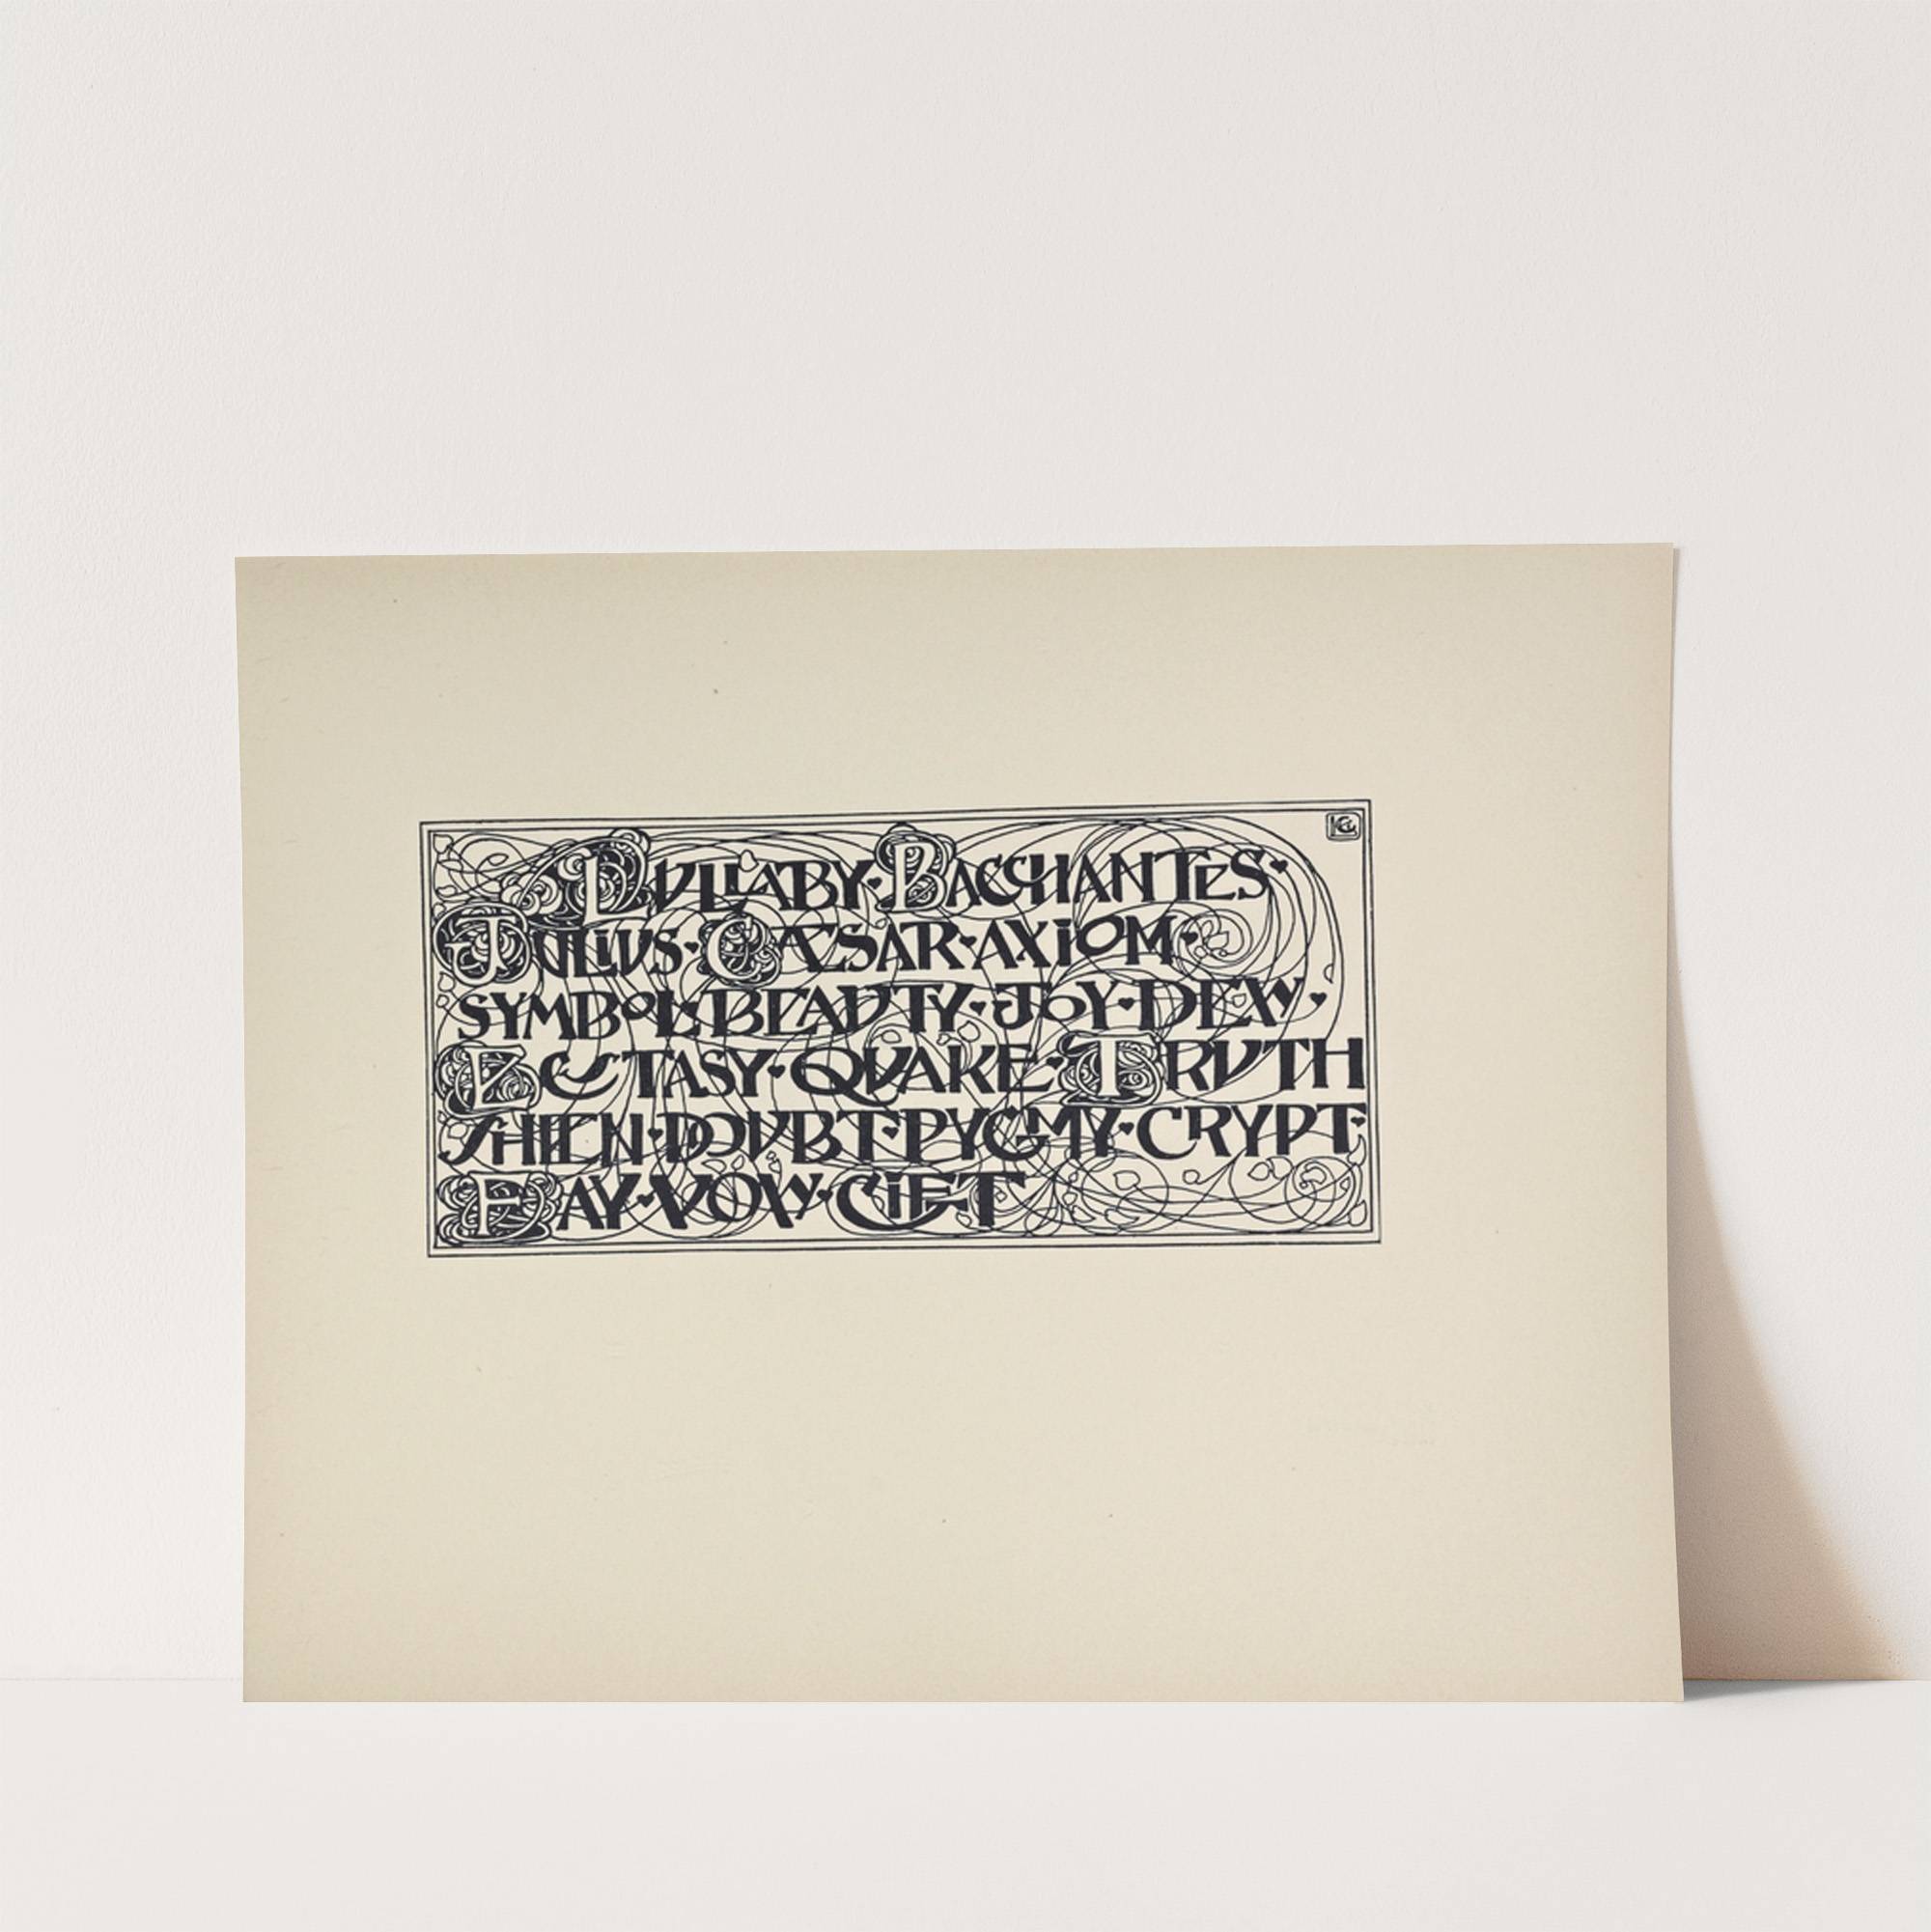 LULLABY·BACCHANTES·
JULIVS·CÆSAR·AXIOM·
SYMBOL·BEAVTY·JOY·DEW·
ECSTASY·QVAKE·TRVTH
SHIEN·DOVBT·PYGMY·CRYPT·
FAY·VOW·GIFT